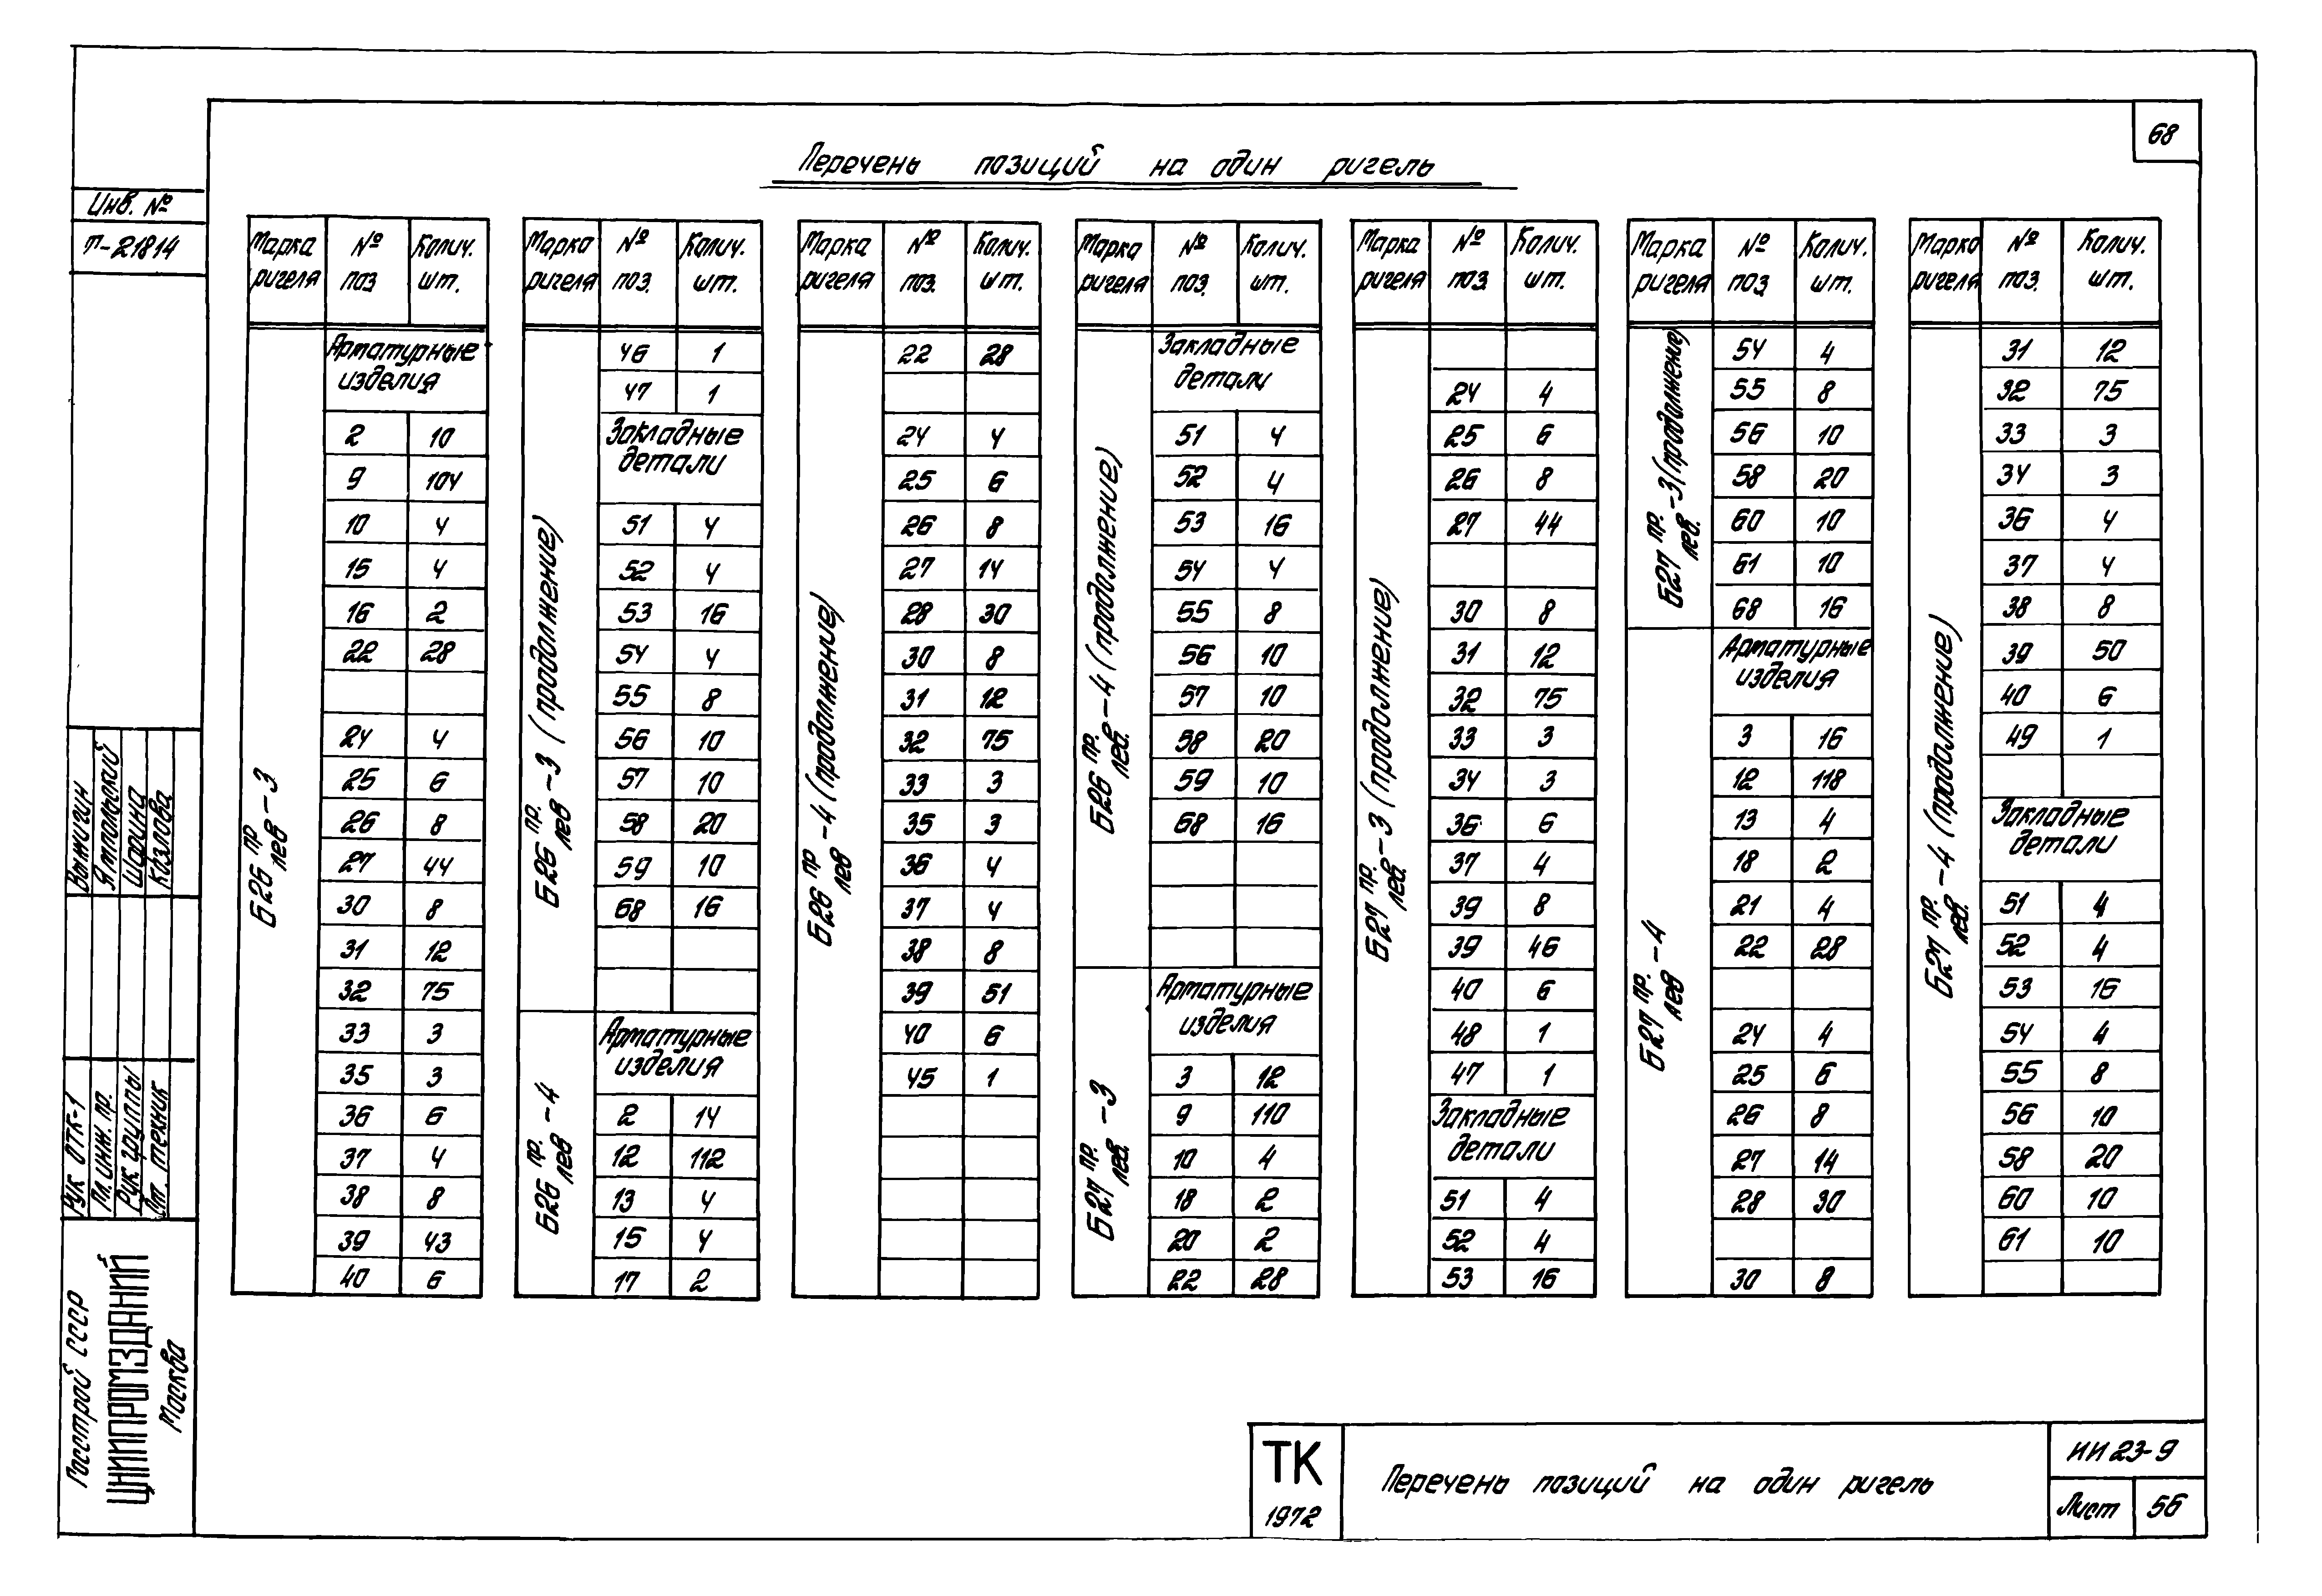 68
Перечень позиций на один ригель
Инв. №
Т-21814
Марка ригеля | № поз | Колич. шт.
Б26 пр лев -3
Арматурные
изделия
2 10
9 104
10 4
15 4
16 2
22 28
24 4
25 6
26 8
27 44
30 8
31 12
32 75
33 3
35 3
36 6
37 4
38 8
39 43
40 6
Марка ригеля | № поз. | Колич. шт.
Б26 пр. лев -3 (продолжение)
46 1
47 1
Закладные
детали
51 4
52 4
53 16
54 4
55 8
56 10
57 10
58 20
59 10
68 16
Б26 пр. лев -4
Арматурные
изделия
2 14
12 112
13 4
15 4
17 2
Марка ригеля | № поз. | Колич. шт.
Б26 пр лев -4 (продолжение)
22 28
24 4
25 6
26 8
27 14
28 30
30 8
31 12
32 75
33 3
35 3
36 4
37 4
38 8
39 51
40 6
45 1
Марка ригеля | № поз. | Колич. шт.
Б26 пр. лев. -4 (продолжение)
Закладные
детали
51 4
52 4
53 16
54 4
55 8
56 10
57 10
58 20
59 10
68 16
Б27 пр. лев. -3
Арматурные
изделия
3 12
9 110
10 4
18 2
20 2
22 28
Марка ригеля | № поз. | Колич. шт.
Б27 пр. лев. -3 (продолжение)
24 4
25 6
26 8
27 44
30 8
31 12
32 75
33 3
34 3
36 6
37 4
39 8
39 46
40 6
48 1
47 1
Закладные
детали
51 4
52 4
53 16
Марка ригеля | № поз. | Колич. шт.
Б27 пр. лев. -3 (продолжение)
54 4
55 8
56 10
58 20
60 10
61 10
68 16
Б27 пр. лев -4
Арматурные
изделия
3 16
12 118
13 4
18 2
21 4
22 28
24 4
25 6
26 8
27 14
28 30
30 8
Марка ригеля | № поз. | Колич. шт.
Б27 пр. лев. -4 (продолжение)
31 12
32 75
33 3
34 3
36 4
37 4
38 8
39 50
40 6
49 1
Закладные
детали
51 4
52 4
53 16
54 4
55 8
56 10
58 20
60 10
61 10
Рук ОТК-1 Выжигин
Гл. инж. пр. Ямпольский
Рук группы Шорина
Ст. техник Козлова
Госстрой СССР
ЦНИИПРОМЗДАНИЙ
Москва
ТК
1972
Перечень позиций на один ригель
ИИ 23-9
Лист 56